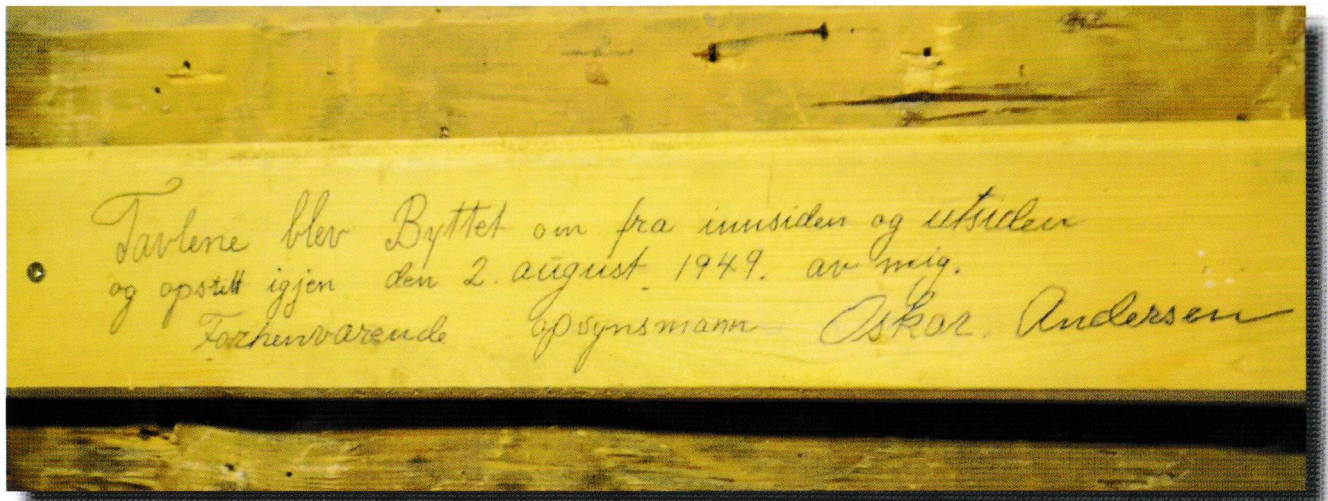 Tavlene blev Byttet om fra innsiden og utsiden
og opstilt igjen den 2. august. 1949. av mig.
Forhenvarende opsynsmann Oskar. Andersen